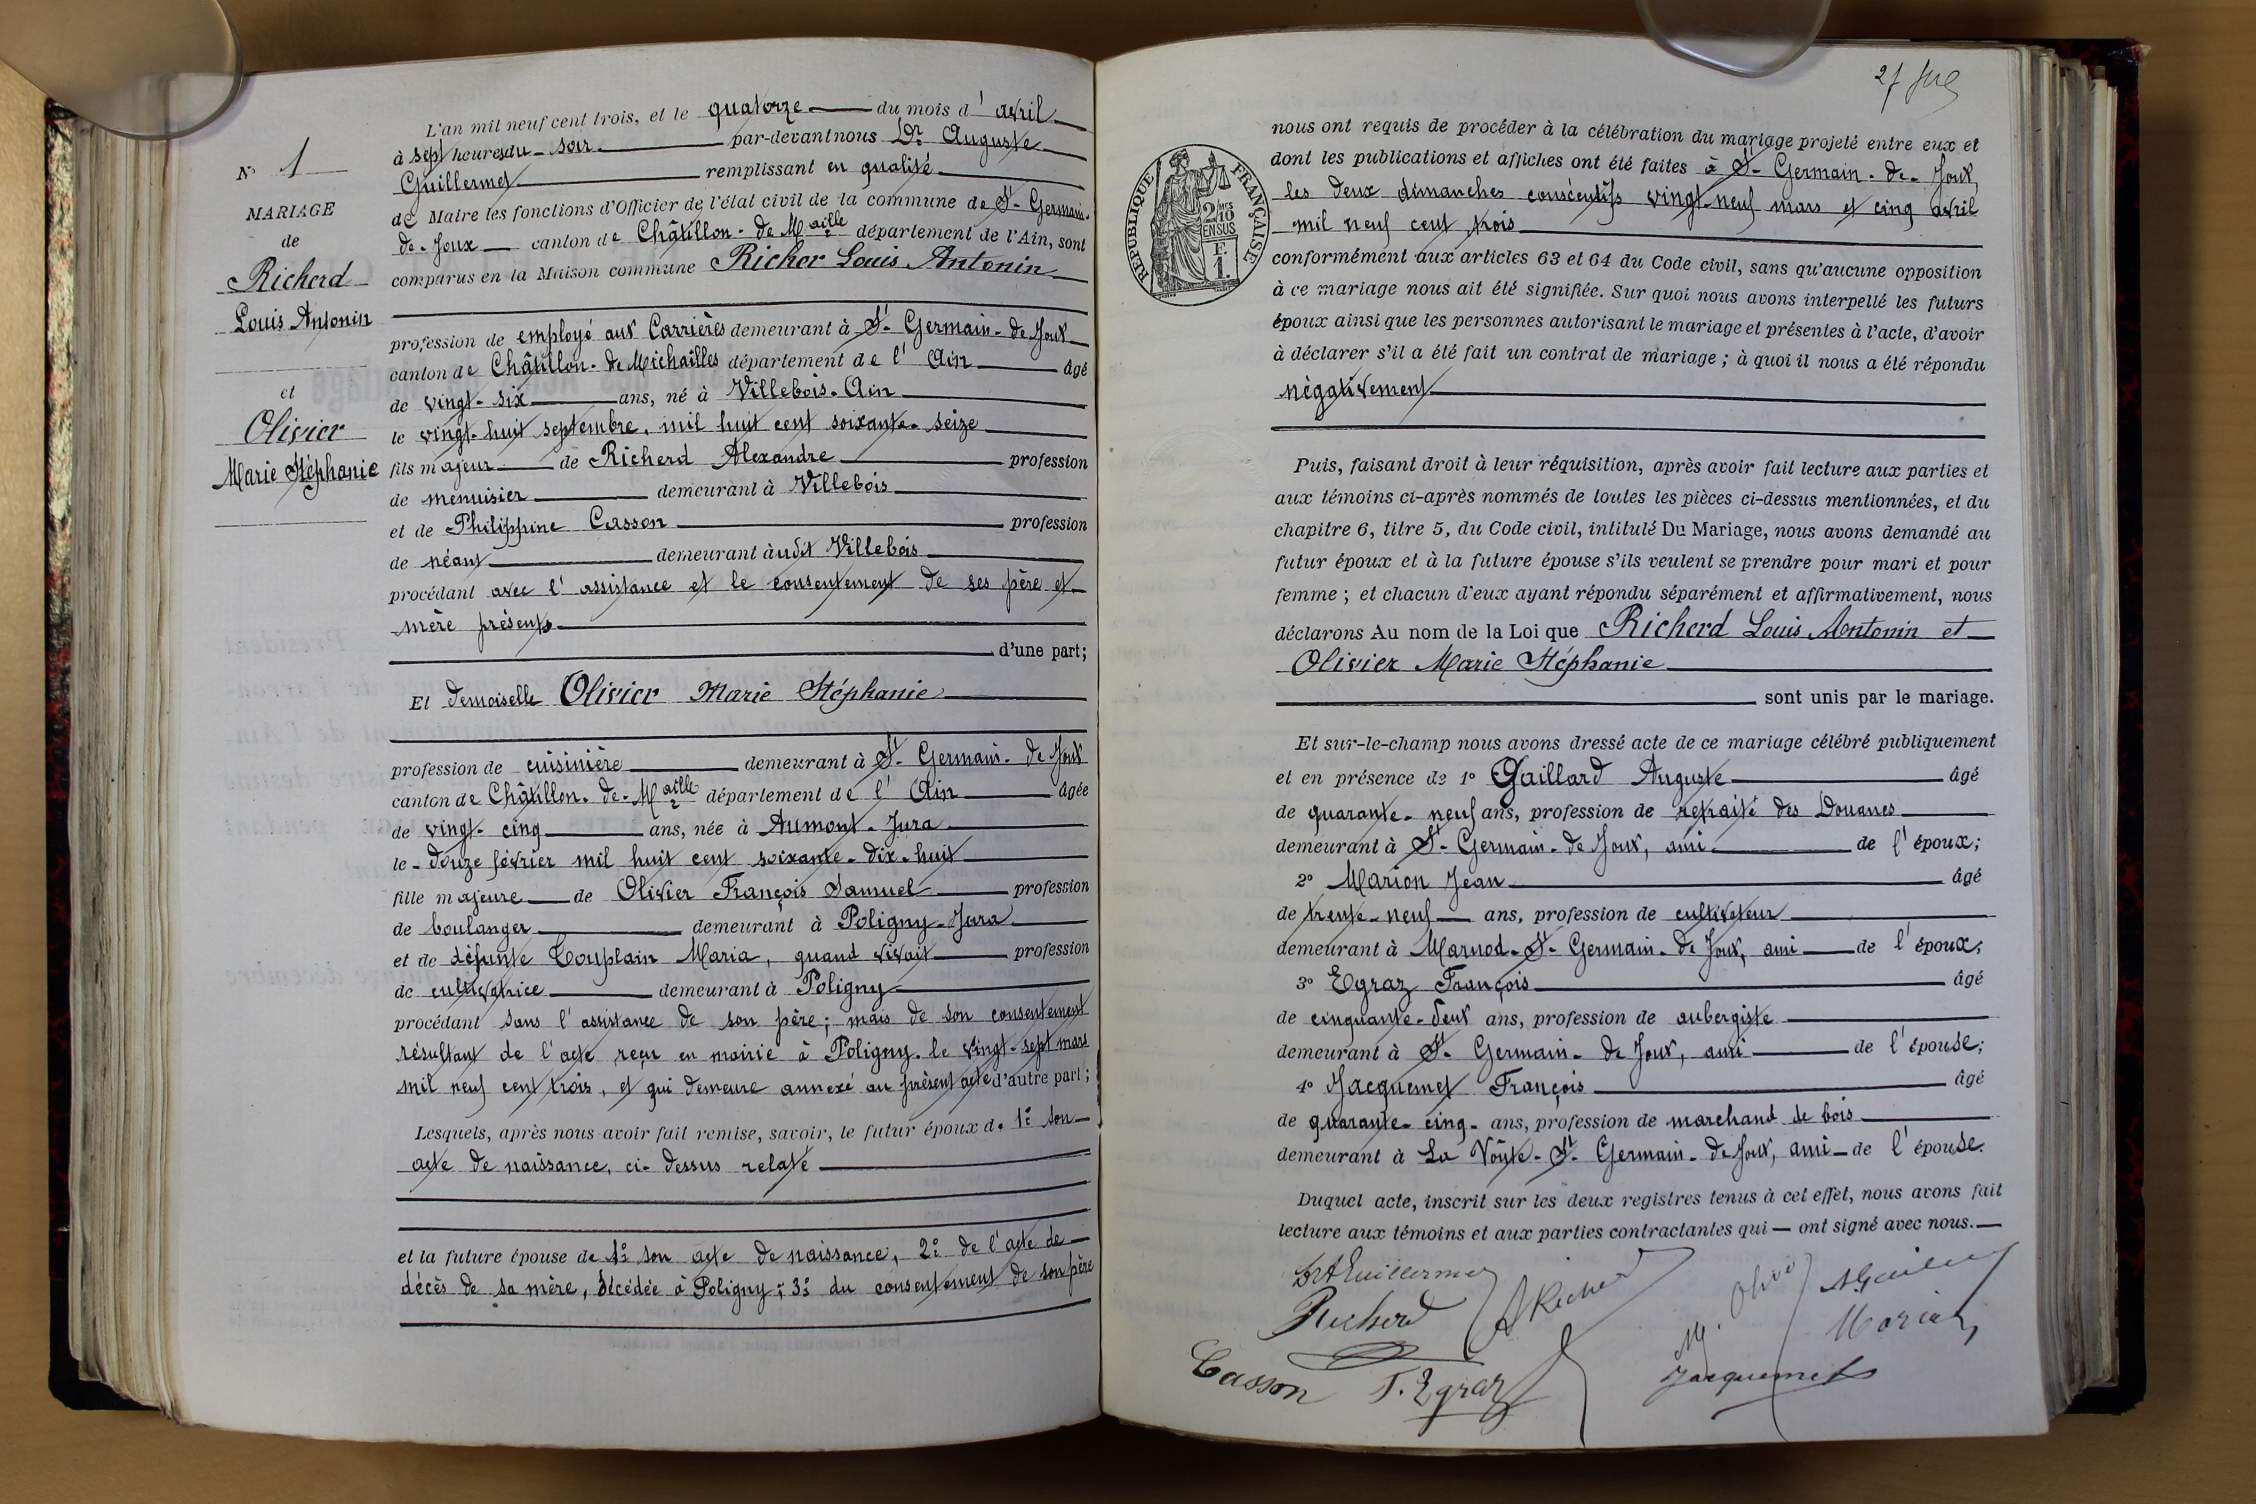 N° 1
MARIAGE
de
Richerd
Louis Antonin
et
Olivier
Marie Stéphanie
L'an mil neuf cent trois, et le quatorze du mois d'avril
à sept heures du soir par-devant nous Dr Auguste
Guillermet remplissant en qualité
de Maire les fonctions d'Officier de l'état civil de la commune de St-Germain-
de-Joux canton de Châtillon-de-Maille département de l'Ain, sont
comparus en la Maison commune Richer Louis Antonin
profession de employé aux Carrières demeurant à St-Germain-de-Joux
canton de Châtillon-de Michailles département de l'Ain âgé
de vingt-six ans, né à Villebois-Ain
le vingt-huit septembre, mil huit cent soixante-seize
fils majeur de Richerd Alexandre profession
de menuisier demeurant à Villebois
et de Philippine Casson profession
de néant demeurant audit Villebois
procédant avec l'assistance et le consentement de ses père et
mère présents
d'une part;
Et demoiselle Olivier Marie Stéphanie
profession de cuisinière demeurant à St-Germain-de Joux
canton de Châtillon-de-Maille département de l'Ain âgée
de vingt-cinq ans, née à Aumont-Jura
le douze février mil huit cent soixante-dix-huit
fille majeure de Olivier François Samuel profession
de boulanger demeurant à Poligny-Jura
et de défunte Couplain Maria, quand vivait profession
de cultivatrice demeurant à Poligny
procédant sans l'assistance de son père; mais de son consentement
résultant de l'acte reçu en mairie à Poligny le vingt-sept mars
mil neuf cent trois, et qui demeure annexé au présent acte d'autre part;
Lesquels, après nous avoir fait remise, savoir, le futur époux de 1° son
acte de naissance, ci-dessus relaté
et la future épouse de 1° son acte de naissance, 2° de l'acte de
décès de sa mère, décédée à Poligny; 3° du consentement de son père
27
RÉPUBLIQUE FRANÇAISE
2/10
EN SUS
F.
1.
nous ont requis de procéder à la célébration du mariage projeté entre eux et
dont les publications et affiches ont été faites à St-Germain-de-Joux,
les deux dimanches consécutifs vingt-neuf mars et cinq avril
mil neuf cent trois
conformément aux articles 63 et 64 du Code civil, sans qu'aucune opposition
à ce mariage nous ait été signifiée. Sur quoi nous avons interpellé les futurs
époux ainsi que les personnes autorisant le mariage et présentes à l'acte, d'avoir
à déclarer s'il a été fait un contrat de mariage; à quoi il nous a été répondu
négativement
Puis, faisant droit à leur réquisition, après avoir fait lecture aux parties et
aux témoins ci-après nommés de toutes les pièces ci-dessus mentionnées, et du
chapitre 6, titre 5, du Code civil, intitulé Du Mariage, nous avons demandé au
futur époux et à la future épouse s'ils veulent se prendre pour mari et pour
femme; et chacun d'eux ayant répondu séparément et affirmativement, nous
déclarons Au nom de la Loi que Richerd Louis Antonin et
Olivier Marie Stéphanie
sont unis par le mariage.
Et sur-le-champ nous avons dressé acte de ce mariage célébré publiquement
et en présence de 1° Gaillard Auguste âgé
de quarante-neuf ans, profession de retraité des Douanes
demeurant à St-Germain-de Joux, ami de l'époux;
2° Marion Jean âgé
de trente-neuf ans, profession de cultivateur
demeurant à Marnod-St-Germain-de Joux, ami de l'époux;
3° Egraz François âgé
de cinquante-deux ans, profession de aubergiste
demeurant à St-Germain-de Joux, ami de l'épouse;
4° Jacquemet François âgé
de quarante-cinq ans, profession de marchand de bois
demeurant à La Voûte-St-Germain-de Joux, ami de l'épouse.
Duquel acte, inscrit sur les deux registres tenus à cet effet, nous avons fait
lecture aux témoins et aux parties contractantes qui ont signé avec nous.
Dr A Guillermet
Richerd
A Richerd
M. Olivier
Marion
Casson
F. Egraz
Jacquemet